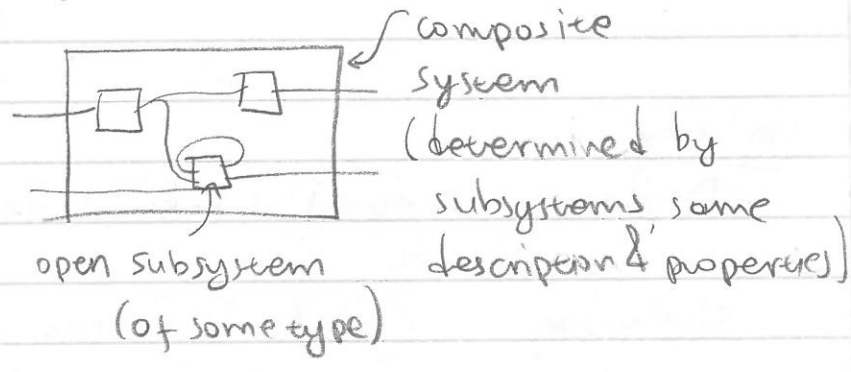 composite
system
(determined by
subsystems some
description & properties)
open subsystem
(of some type)